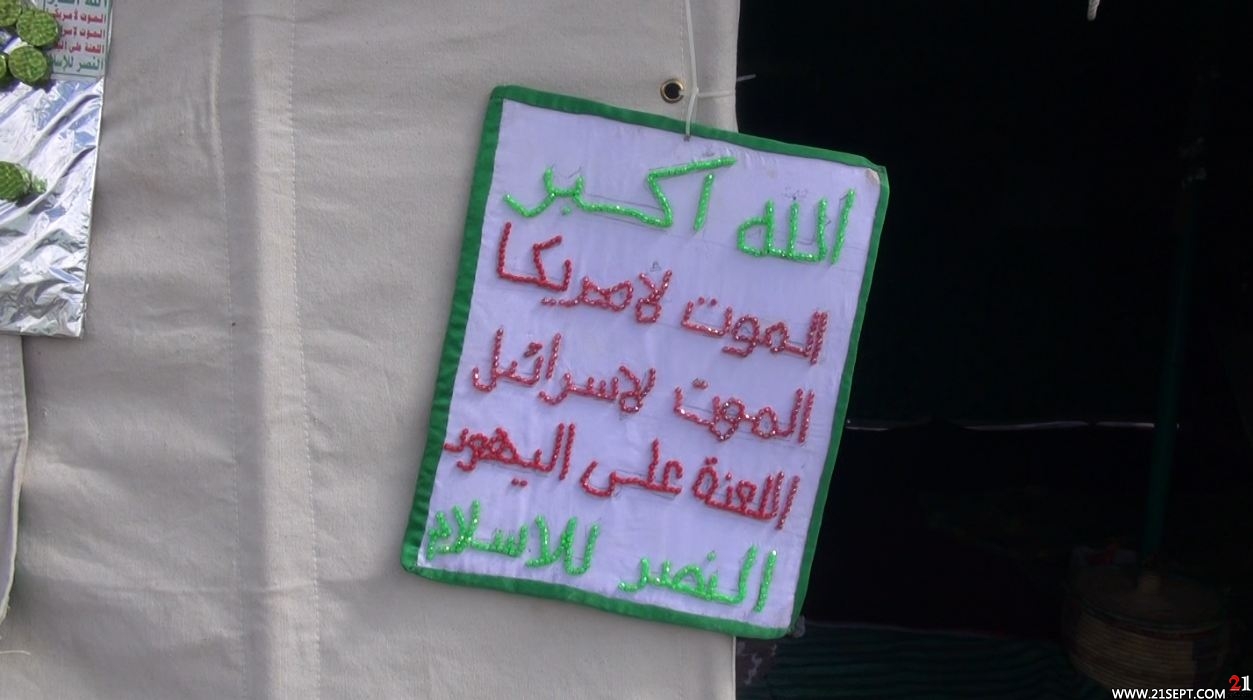 الله اكبر
الموت لامريكا
الموت لاسرائيل
اللعنة على اليهود
النصر للاسلام
الله اكبر
الموت لأمريكا
الموت لإسر
اللعنة على اليه
النصر للإسلا
21
WWW.21SEPT.COM